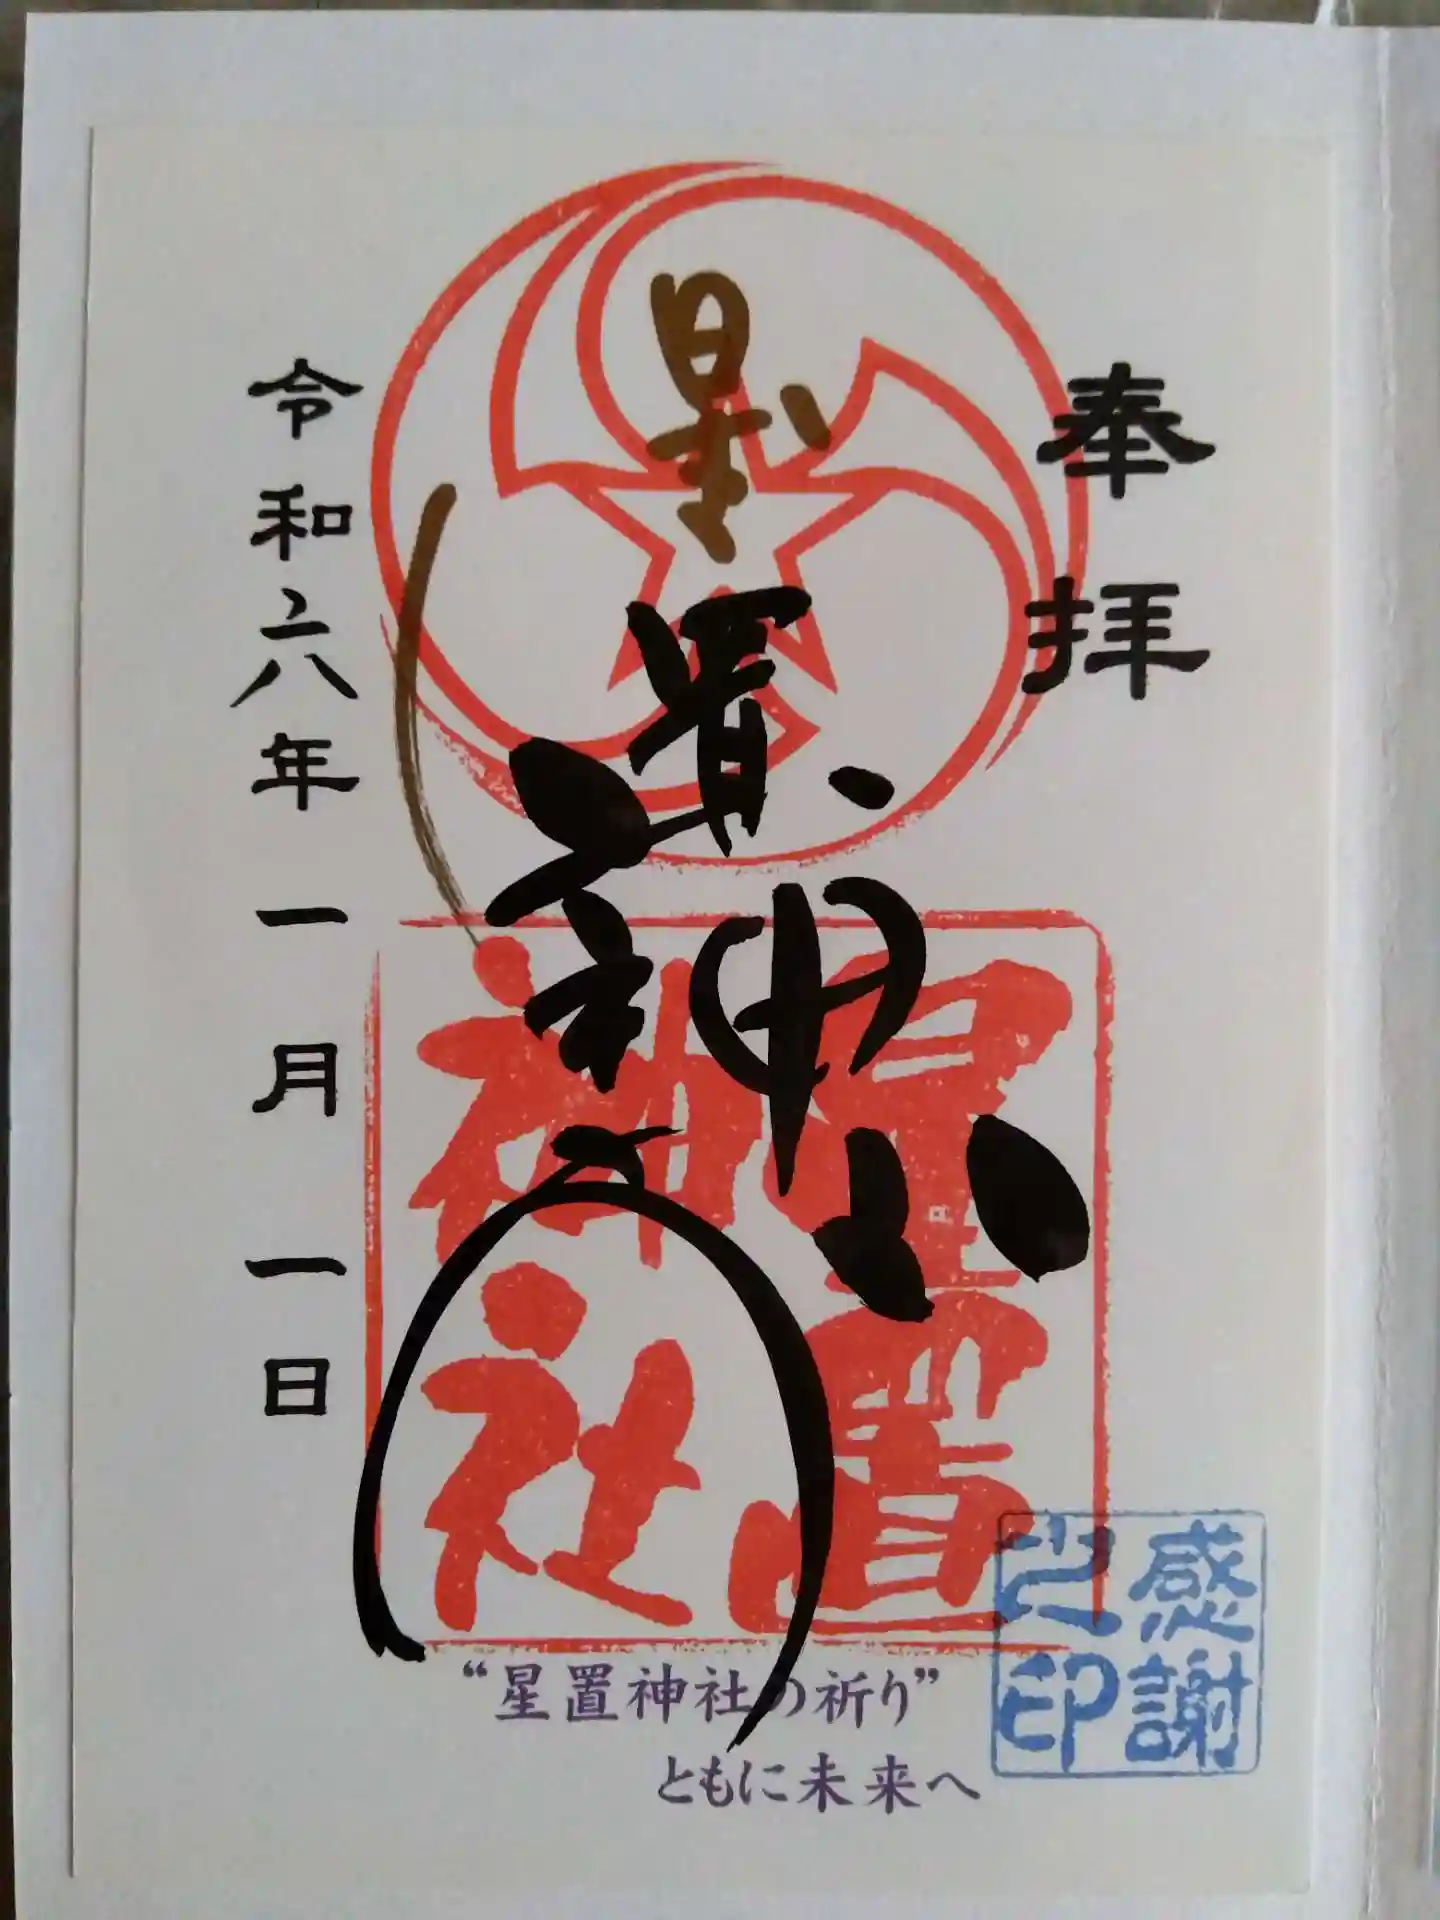 奉拝
星置神社
令和六年一月一日
星置
神社
感謝
之印
“星置神社の祈り”
ともに未来へ